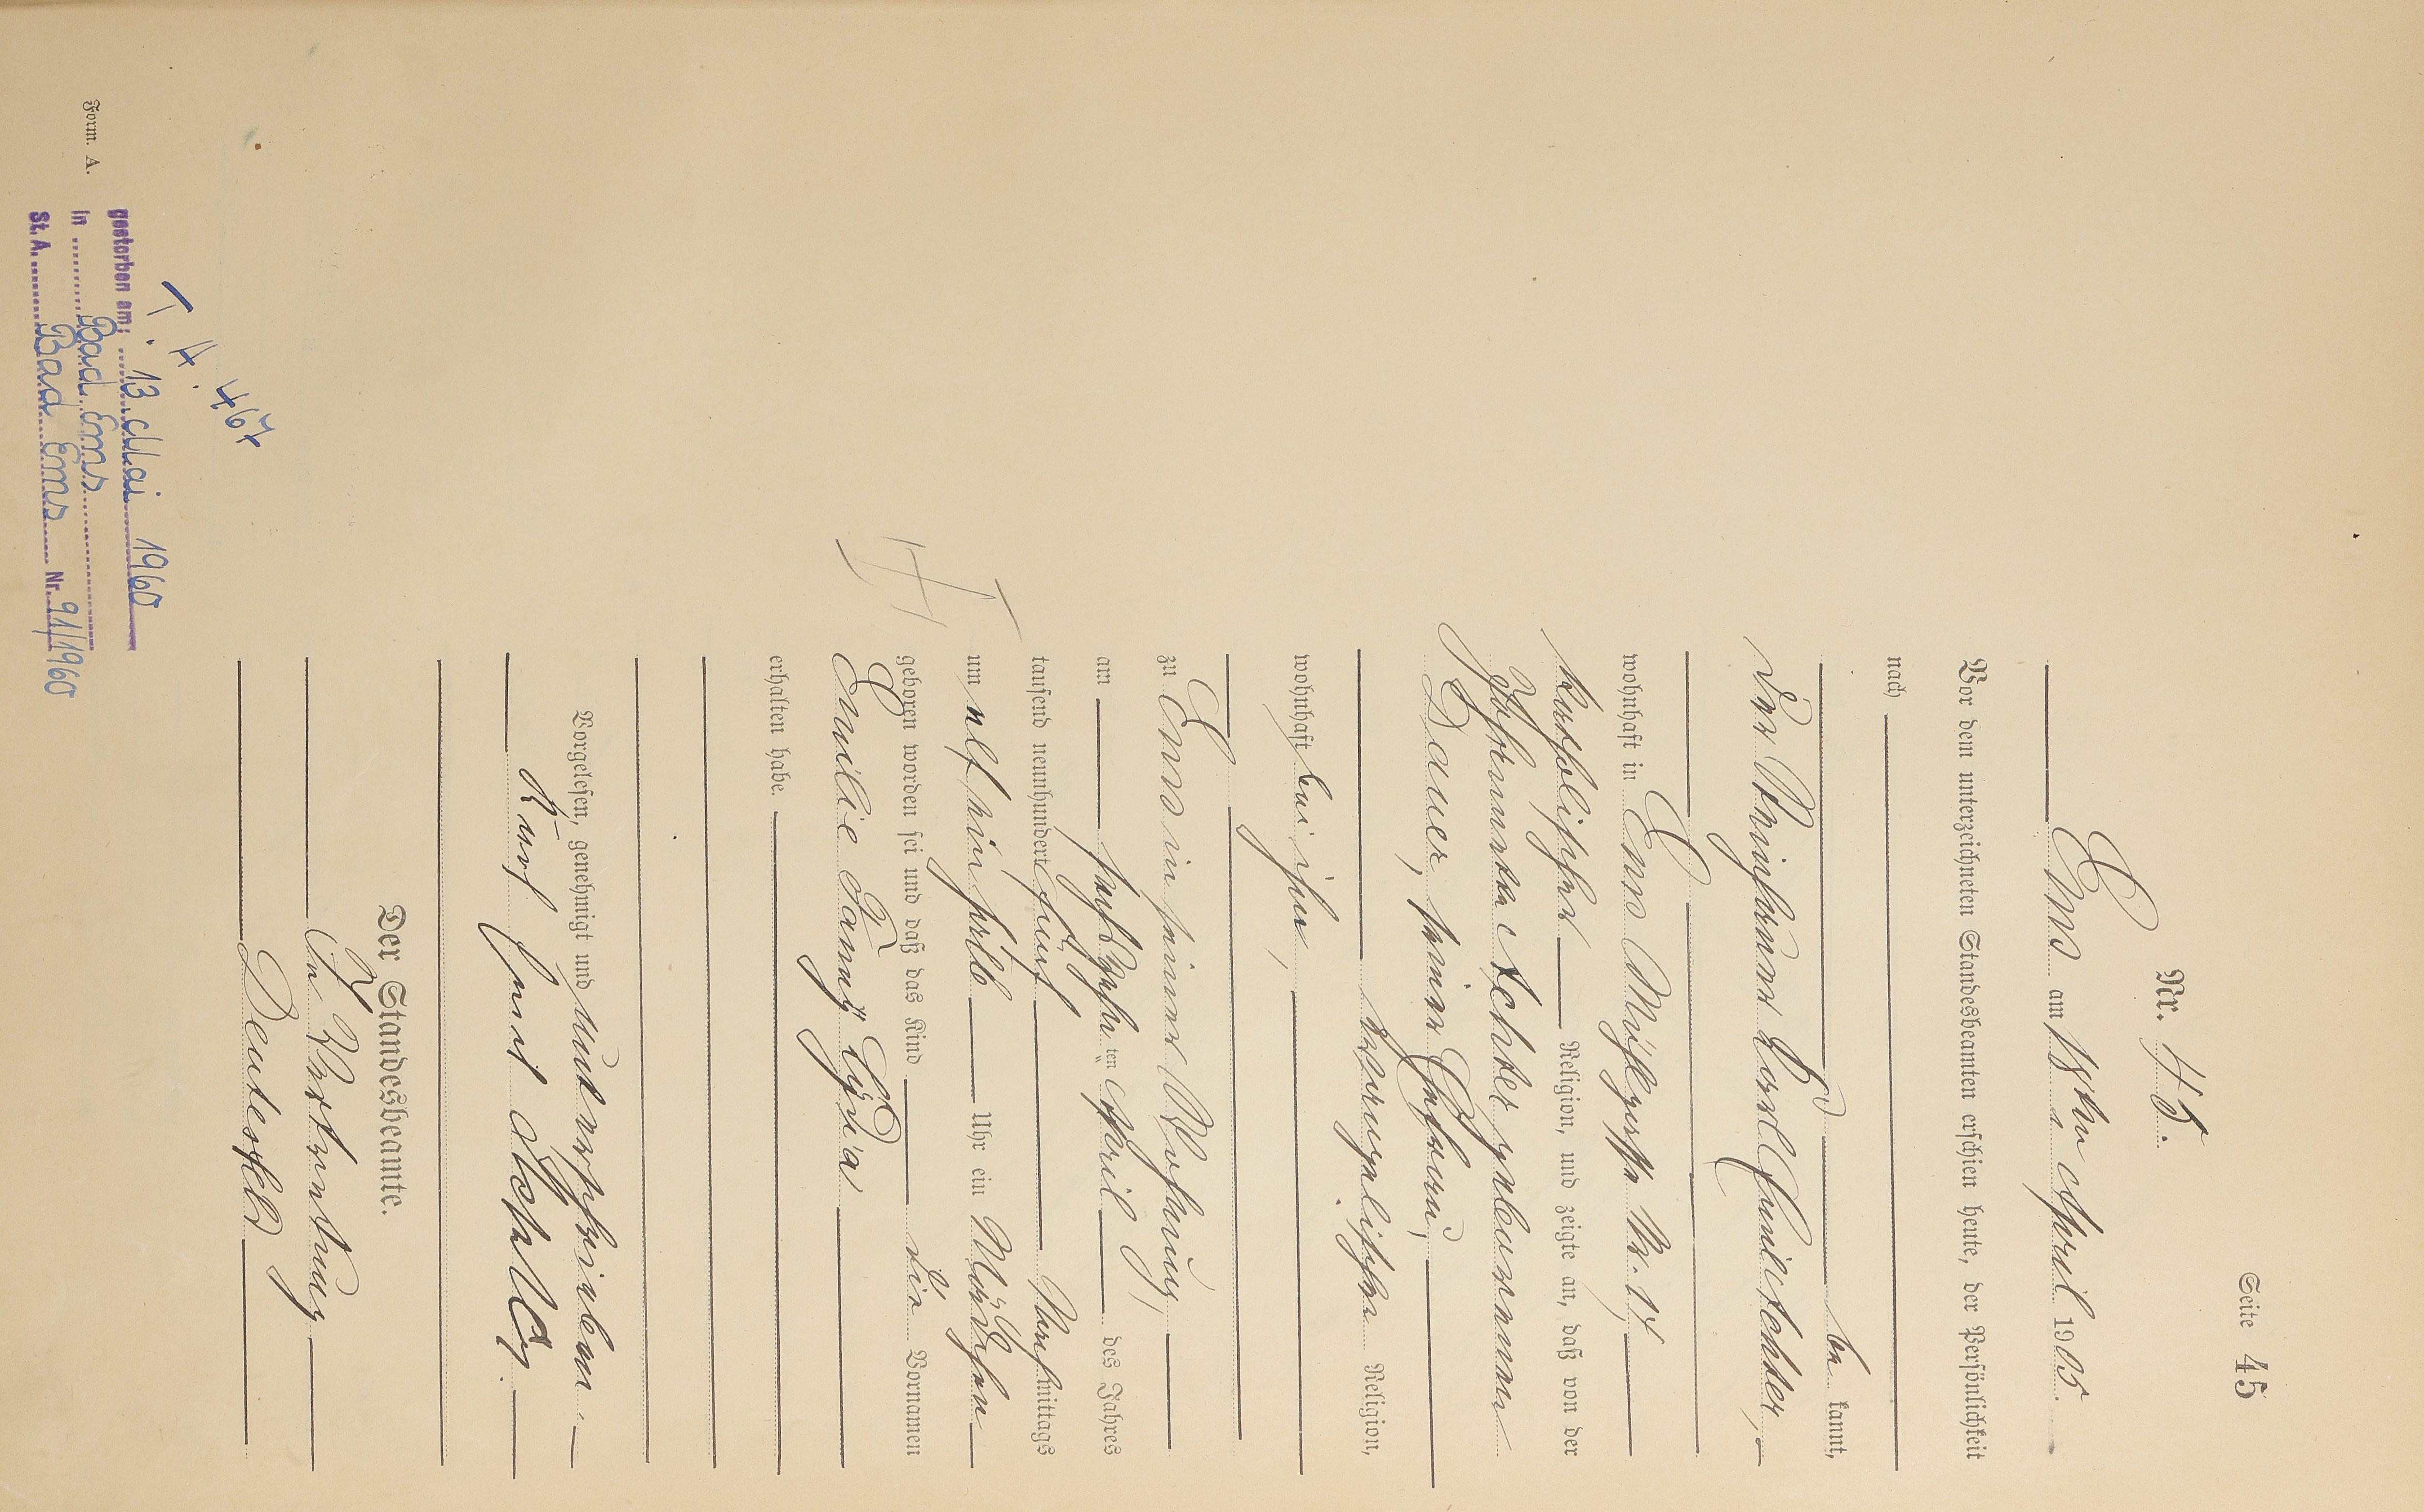 Seite 45
Nr. 45.
Ems am 18ten April 1905.
Vor dem unterzeichneten Standesbeamten erschien heute, der Persönlichkeit
nach
be kannt,
der
wohnhaft in Ems
katholischer Religion, und zeigte an, daß von der
geborenen
Dauer, seiner Ehefrau,
evangelischer Religion,
wohnhaft bei ihm,
zu Ems in seiner Wohnung,
am fünfzehnten April des Jahres
tausend neunhundert fünf Nachmittags
um elf ein halb Uhr ein Mädchen
geboren worden sei und daß das Kind die Vornamen
Emilie Fanny Lydia
erhalten habe.
Vorgelesen, genehmigt und unterschrieben
Karl
Der Standesbeamte.
In Vertretung
Form. A.
gestorben am: 13. Mai 1960
in Bad Ems
St. A. Bad Ems Nr. 91/1960